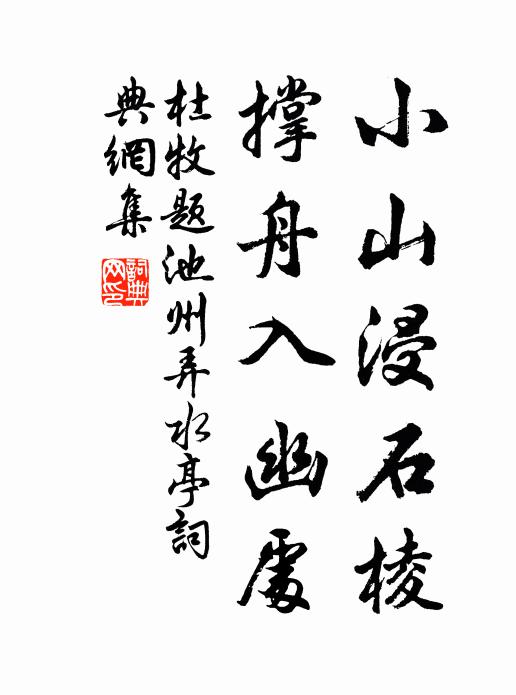 小山浸石棱
撑舟入幽處
杜牧題池州弄水亭詞
典網集
詞典
网印